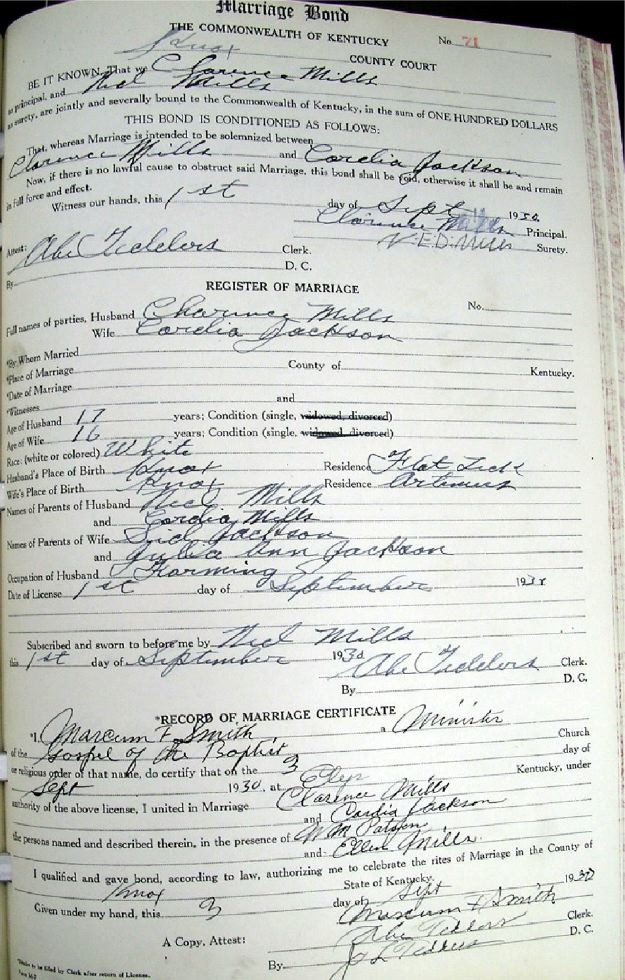 Marriage Bond
THE COMMONWEALTH OF KENTUCKY No. 71
Knox COUNTY COURT
BE IT KNOWN, That we Clarence Mills
as principal, and Mills
as surety, are jointly and severally bound to the Commonwealth of Kentucky, in the sum of ONE HUNDRED DOLLARS
THIS BOND IS CONDITIONED AS FOLLOWS:
That, whereas Marriage is intended to be solemnized between
Clarence Mills and Cordia Jackson
Now, if there is no lawful cause to obstruct said Marriage, this bond shall be void, otherwise it shall be and remain
in full force and effect.
Witness our hands, this 1st day of Sept 1930.
Clarence Mills Principal.
Attest: N.E.D. Mills Surety.
Abe Tedders Clerk.
By D. C.
REGISTER OF MARRIAGE
No.
Full names of parties, Husband Clarence Mills
Wife Cordia Jackson
*By Whom Married
*Place of Marriage County of Kentucky.
*Date of Marriage
*Witnesses and
Age of Husband 17 years; Condition (single, widowed, divorced)
Age of Wife 16 years; Condition (single, widowed, divorced)
Race: (white or colored) White
Husband's Place of Birth Knox Residence Flat Lick
Wife's Place of Birth Knox Residence Artemus
Names of Parents of Husband Mills
and Cordia Mills
Names of Parents of Wife Jackson
and Julia Ann Jackson
Occupation of Husband Farming
Date of License 1st day of September 193
Subscribed and sworn to before me by Mills
this 1st day of September 1930 Abe Tedders Clerk.
By D. C.
*RECORD OF MARRIAGE CERTIFICATE
*I, Marcum F. Smith a Minister
of the Gospel of the Baptist Church
or religious order of that name, do certify that on the 3 day of
Sept 1930, at Kentucky, under
authority of the above license, I united in Marriage Clarence Mills
and Cordia Jackson
the persons named and described therein, in the presence of W.M.
and Ellen Mills.
I qualified and gave bond, according to law, authorizing me to celebrate the rites of Marriage in the County of
Knox State of Kentucky.
Given under my hand, this 3 day of Sept 1930
Marcum F. Smith
A Copy, Attest: Abe Tedders Clerk.
By Tedders D. C.
*Blanks to be filled by Clerk after return of License.